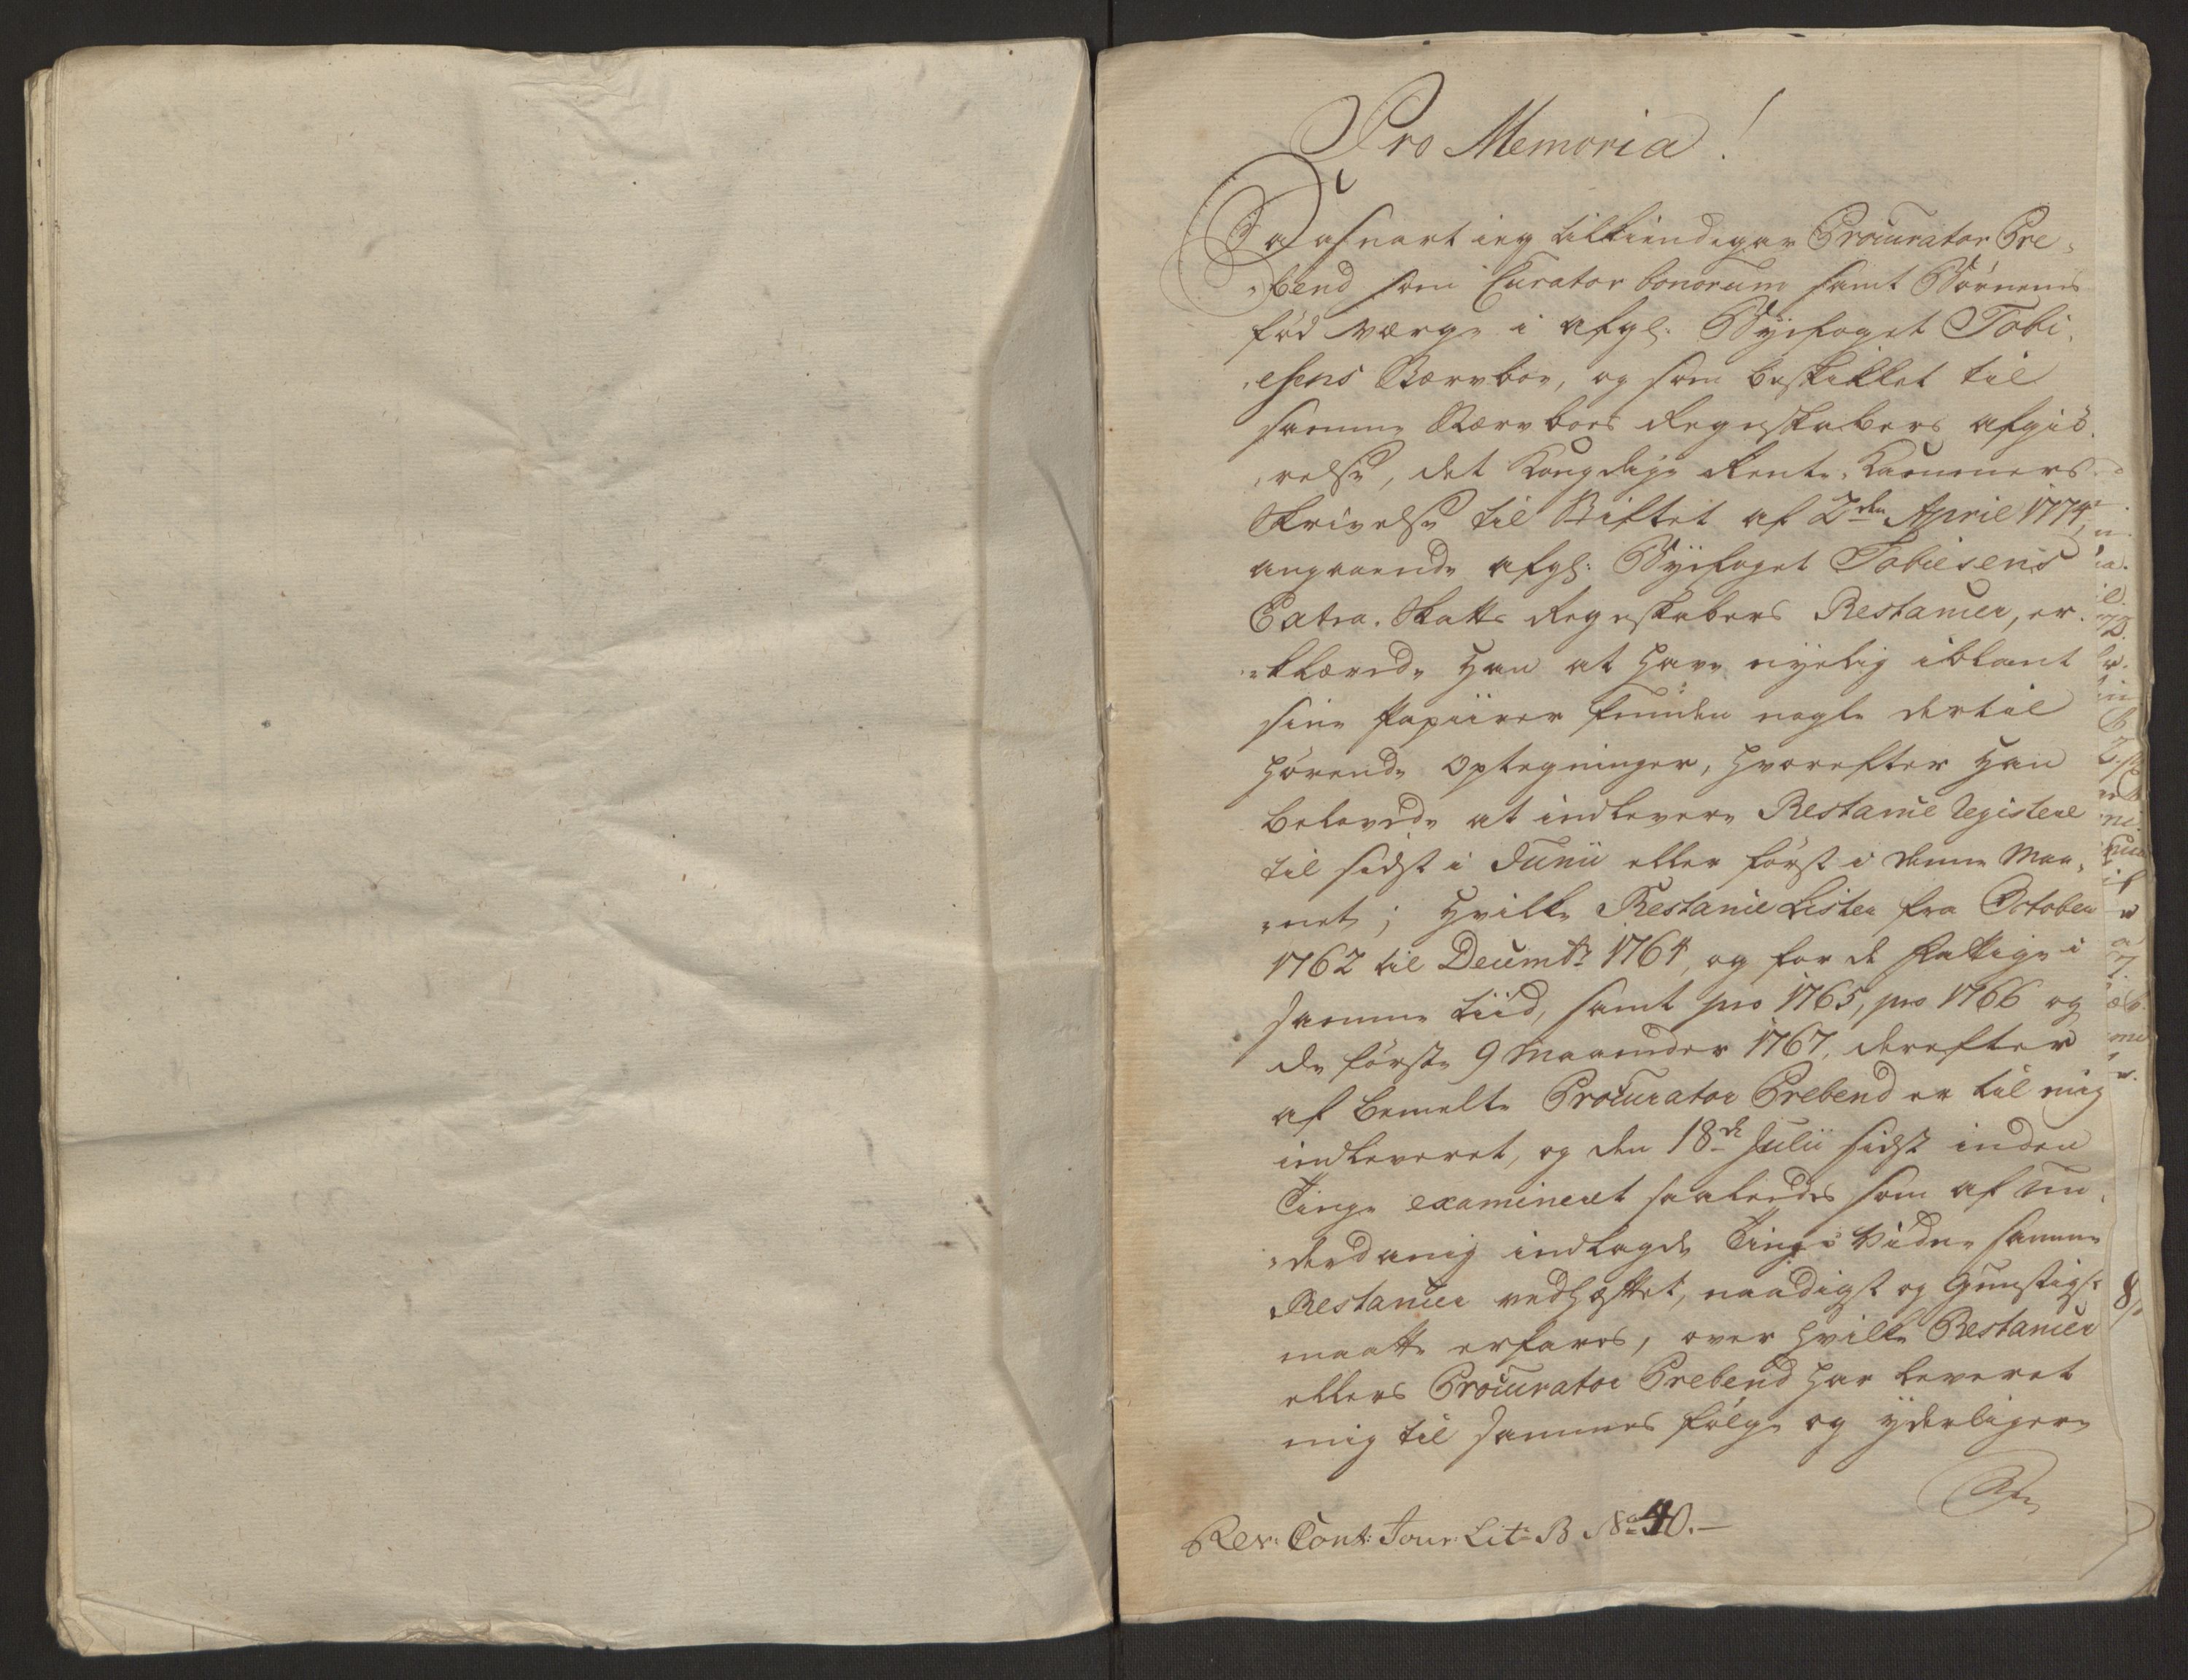 Pro Memoria!
Saasnart ieg tilkiendegav Procurator Pre-
-bend som Curator bonorum samt Børnenes
fød værge i afgl: Byefoget Tobi-
-esens Stervboe, og som beskikket til
samme Stervboes Regnskabers afgiö-
-relse, det Kongelige Rente-Kammers
Skrivelse til Stiftet af 2den April 1774,
angaaende afgl: Byefoget Tobiesens
Extra-Skatts Regnskabers Restancer, er-
-klærede han at have nyelig iblant
sine Papiirer funden nogle dertil
hörende Optegninger, hvorefter han
belovede at indlevere Restance Registere
til sidst i Junii eller först i denne Maa-
-net; hvilke Restance Lister fra October
1762 til Decembr 1764, og for de fattige i
samme tiid, samt pro 1765, pro 1766 og
de förste 9 Maaneder 1767, derefter
af bemelte Procurator Prebend er til mig
indleveret, og den 18de Julii sidst inden
Tinge examineret saaledes som af un-
-derdanig indlagde Tings Vidne samme
Restancer vedhæftet, naadigst og Gunstigst
maatte erfares, over hvilke Restancer
ellers Procurator Prebend har leveret
mig til sammes fölge og yderligere
Rev: Cont: Jour: Lit: B No 40.—